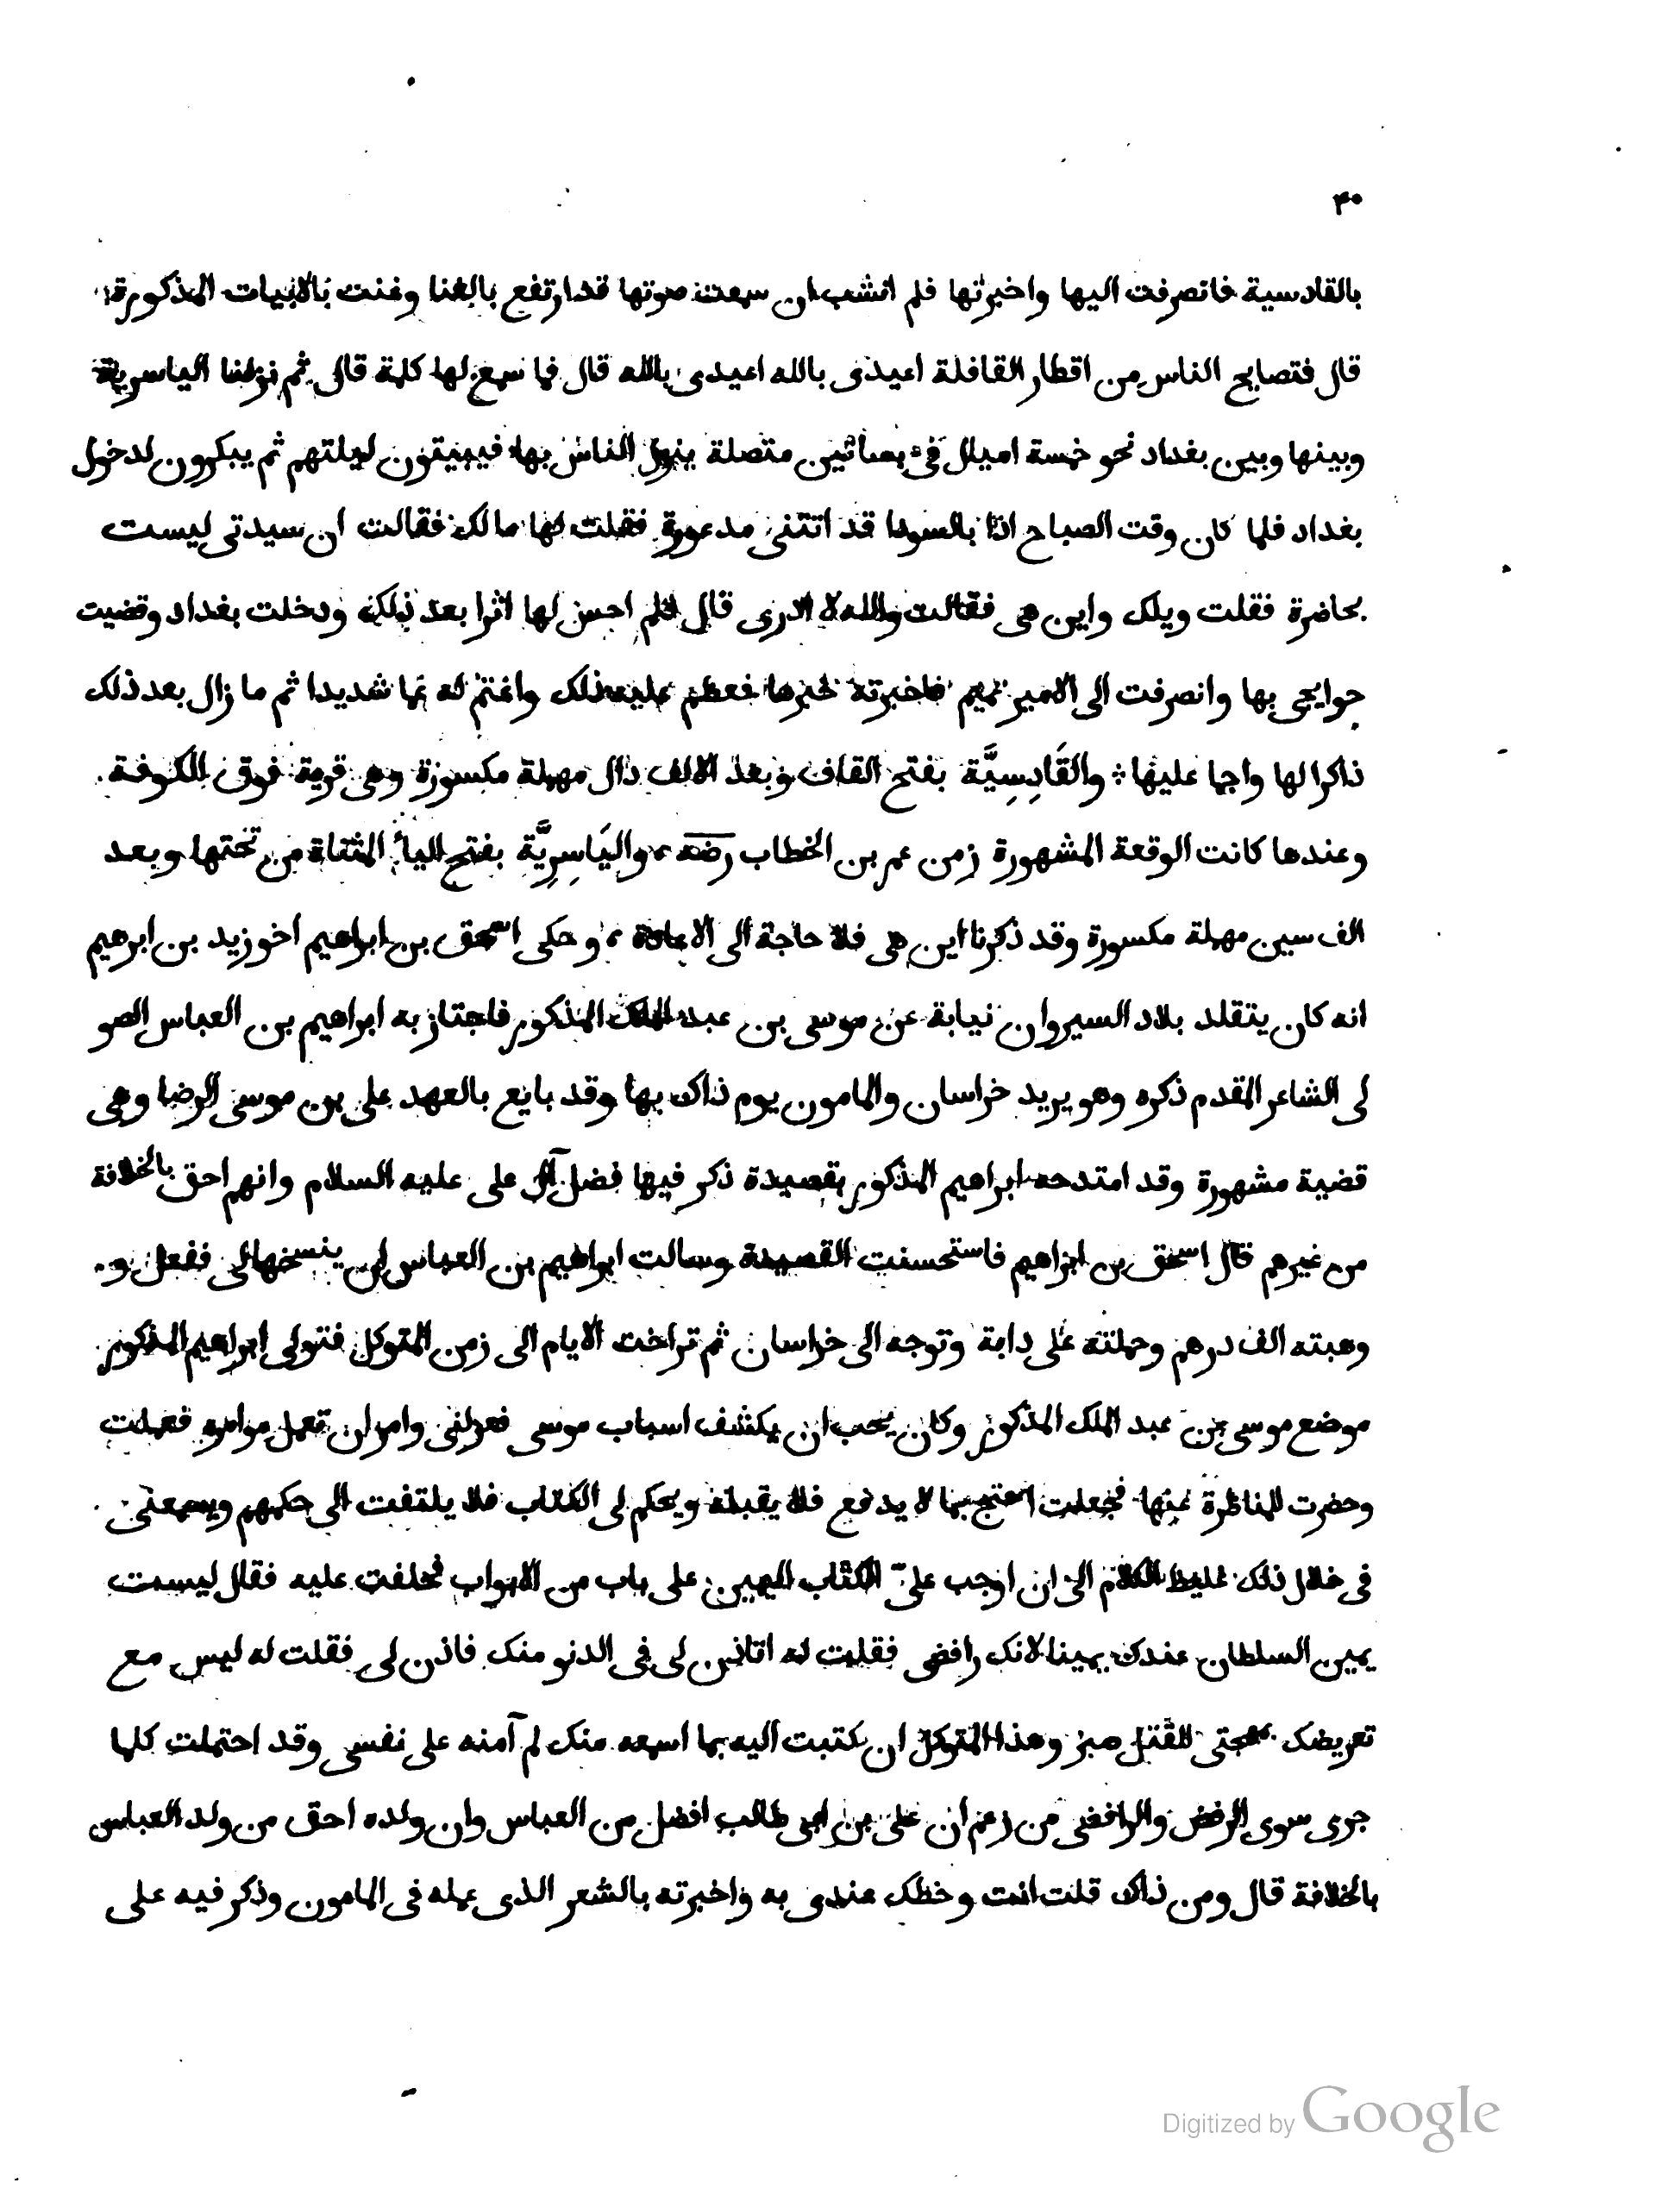 ٣٠
بالقادسية فانصرفت اليها واخبرتها فلم انشب ان سمعت صوتها قد ارتفع بالغنا وغنت بالابيات المذكورة
قال فتصايح الناس من اقطار القافلة اعيدى بالله اعيدى بالله قال فما سمع لها كلمة قال ثم نزلنا الياسرية
وبينها وبين بغداد نحو خمسة اميال فى بساتين متصلة ينزل الناس بها فيبيتون ليلتهم ثم يبكرون لدخول
بغداد فلما كان وقت الصباح اذا بالسودا قد اتتنى مدعورة فقلت لها مالك فقالت ان سيدتى ليست
بحاضرة فقلت ويلك واين هى فقالت والله لا ادرى قال فلم احس لها اثرا بعد ذلك ودخلت بغداد وقضيت
حوايجى بها وانصرفت الى الامير تميم فاخبرته خبرها فعظم عليه ذلك واغتم له غما شديدا ثم ما زال بعد ذلك
ذاكرا لها واجما عليها ؞ والقَادِسِيَّة بفتح القاف وبعد الالف دال مهملة مكسورة وهى قرية فوق الكوفة
وعندها كانت الوقعة المشهورة زمن عمر بن الخطاب رضه ، واليَاسِرِيَّة بفتح الياء المثناة من تحتها وبعد
الف سين مهملة مكسورة وقد ذكرنا اين هى فلا حاجة الى الاعادة ، وحكى اسحق بن ابراهيم اخو زيد بن ابرهيم
انه كان يتقلد بلاد السيروان نيابة عن موسى بن عبد الملك المذكور فاجتاز به ابراهيم بن العباس الصو
لى الشاعر المقدم ذكره وهو يريد خراسان والمامون يوم ذاك بها وقد بايع بالعهد على بن موسى الرضا وهى
قضية مشهورة وقد امتدحه ابراهيم المذكور بقصيدة ذكر فيها فضل آل على عليه السلام وانهم احق بالخلافة
من غيرهم قال اسحق بن ابراهيم فاستحسنت القصيدة وسالت ابراهيم بن العباس ان ينسخها لى ففعل و
وهبته الف درهم وحملته على دابة وتوجه الى خراسان ثم تراخت الايام الى زمن المتوكل فتولى ابراهيم المذكور
موضع موسى بن عبد الملك المذكور وكان يحب ان يكشف اسباب موسى فعزلنى وامر ان تعمل موامرة فعملت
وحضرت للمناظرة عنها فجعلت احتج بما لا يدفع فلا يقبله ويحكم لى الكتاب فلا يلتفت الى حكمهم ويسمعنى
فى خلال ذلك غليظ الكلام الى ان اوجب علىّ الكتاب اليمين على باب من الابواب فحلفت عليه فقال ليست
يمين السلطان عندك يمينا لانك رافضى فقلت له اتاذن لى فى الدنو منك فاذن لى فقلت له ليس مع
تعريضك بمهجتى للقتل صبر وهذا المتوكل ان كتبت اليه بما اسمعه منك لم آمنه على نفسى وقد احتملت كلما
جرى سوى الرفض والرافضى من زعم ان على بن ابى طالب افضل من العباس وان ولده احق من ولد العباس
بالخلافة قال ومن ذاك قلت انت وخطك عندى به واخبرته بالشعر الذى عمله فى المامون وذكر فيه على
Digitized by Google